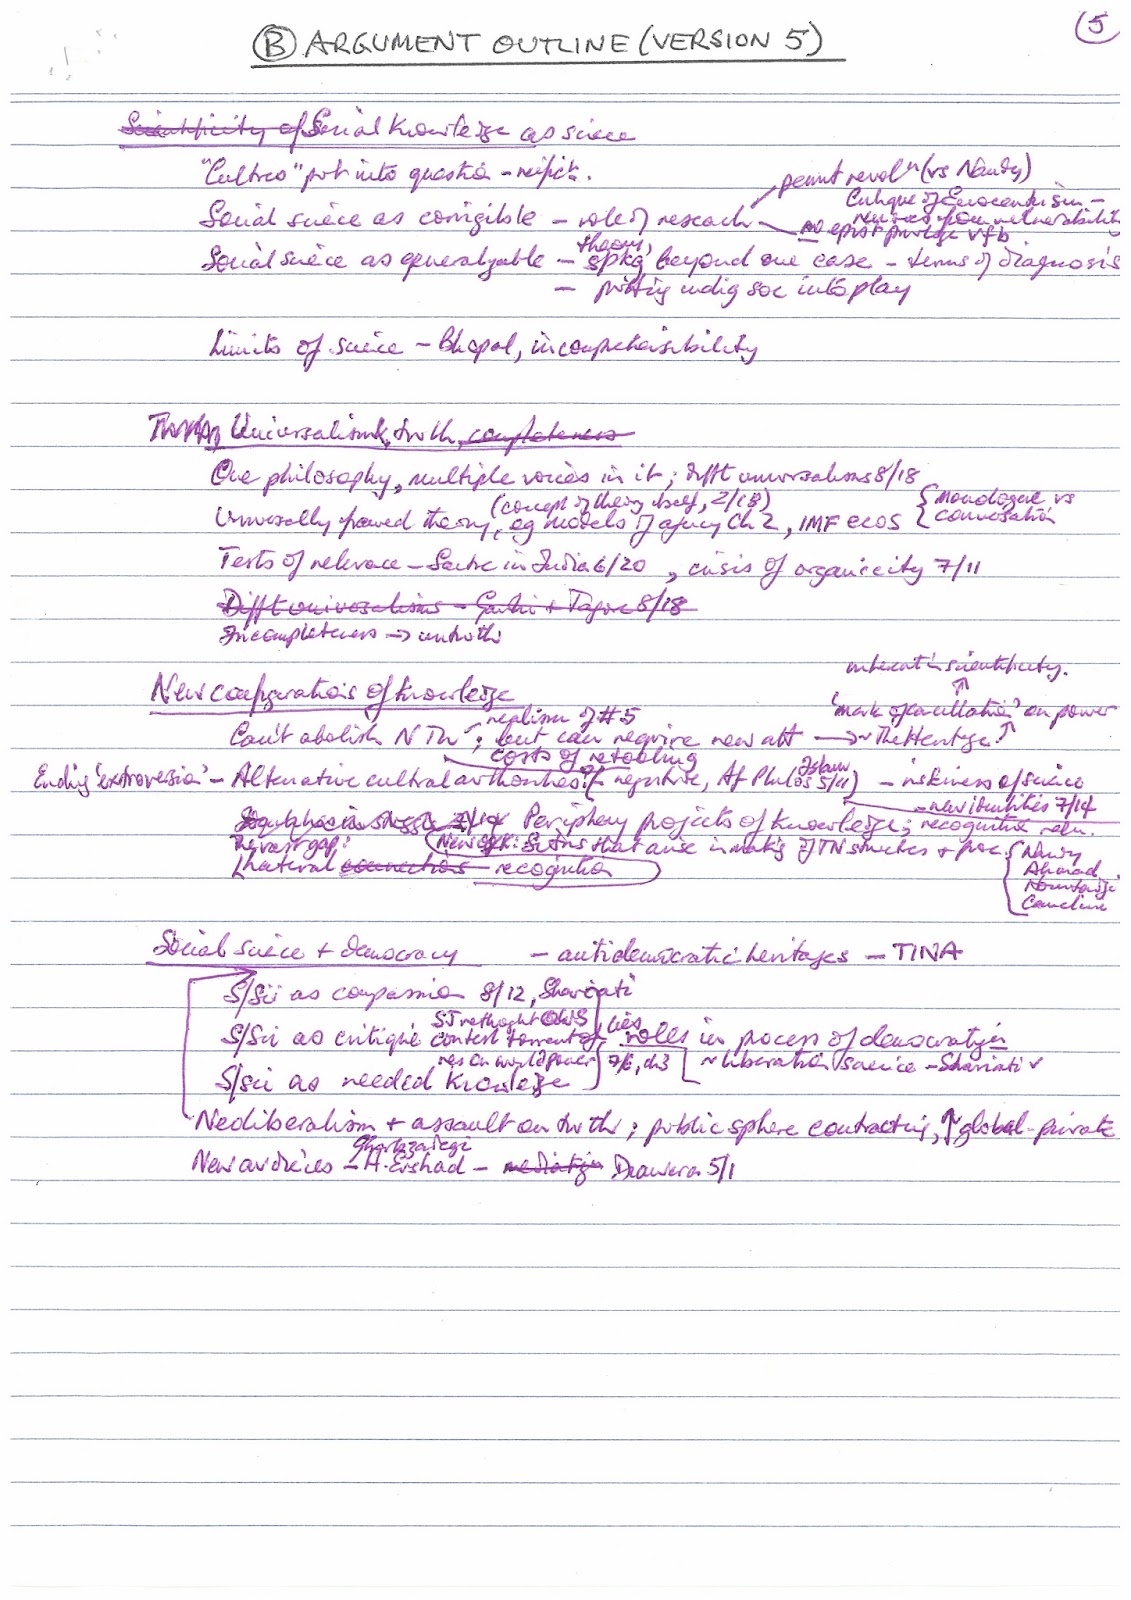 (5
Ⓑ ARGUMENT OUTLINE (VERSION 5)
Scientificity of Social knowledge as science
"Cultures" put into question - reificn.
permt revoln (vs Nandy)
Social science as corrigible - role of research
Critique of Eurocentrism -
no epist privilege
Social science as generalizable - theory, spkg beyond one case - terms of diagnosis
- putting indig soc into play
Limits of science - Bhopal, incomprehensibility
Universalism, truth, completeness
One philosophy, multiple voices in it; difft universalisms 8/18
(concept of theory itself, 2/18)
Universally framed theory, eg models of agency Ch 2, IMF ecos { Monologue vs
conversation
Tests of relevance - Sartre in India 6/20, crisis of organicity 7/11
Difft universalisms - Gandhi + Tagore 8/18
Incompleteness → untruth
inherent in scientificity.
New configurations of knowledge
realism of #5
'mark of cancellation' on power
Can't abolish NTh; but can require new att → ~ The Heritage?
costs of retooling
Ending 'extroversion' - Alternative cultural authorities (negritude, Af Philos, Islam 5/11) - riskiness of science
- new identities 7/14
Periphery projects of knowledge; recognition reln.
The vast gap:
that arise in making of TN structures + proc { Nandy
Lateral connections recognition
Ahmad
Social science + democracy - antidemocratic heritages - TINA
S/Sci as compassion 8/12, Shariati
S/Sci as critique
roles in process of democratizn
res on world power } 7/6, ch3
~ liberation science - Shariati ✓
S/sci as needed knowledge
Neoliberalism + assault on truth; public sphere contracting, ↑ global-private
Gharbzadegi
New audiences - A. Ershad - mediatizn 5/1